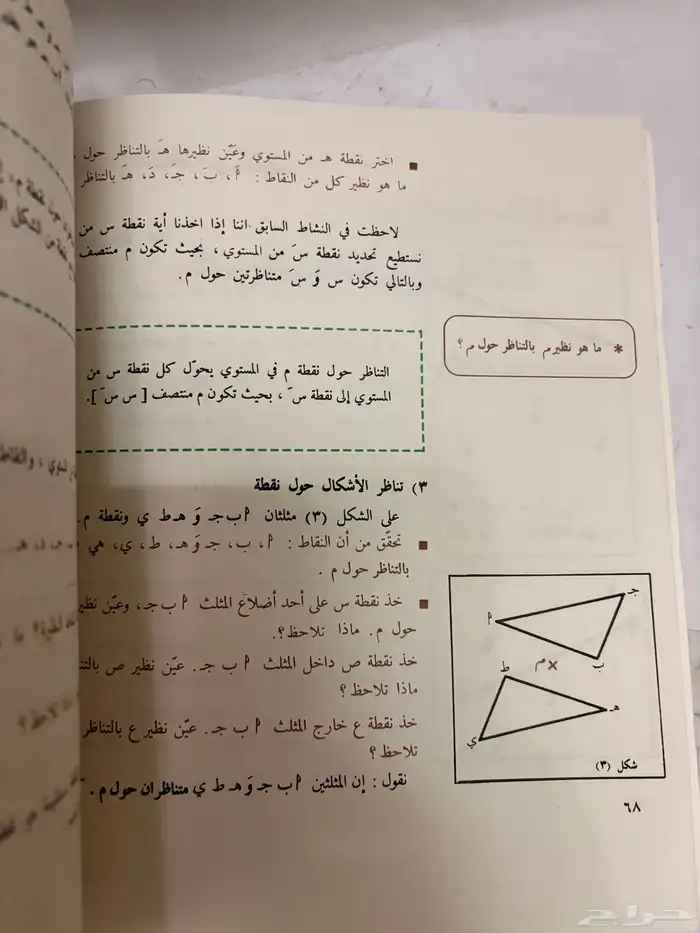 اختر نقطة هـ من المستوي وعَيّن نظيرها هـَ بالتناظر حول
ما هو نظير كل من النقاط : أَ، بَ، جـَ، دَ، هـَ بالتناظر
لاحظت في النشاط السابق اننا إذا اخذنا أية نقطة س من
نستطيع تحديد نقطة سَ من المستوي، بحيث تكون م منتصف
وبالتالي تكون س وَ سَ متناظرتين حول م.
* ما هو نظير م بالتناظر حول م؟
التناظر حول نقطة م في المستوي يحوّل كل نقطة س من
المستوي إلى نقطة سَ، بحيث تكون م منتصف [ س سَ ].
٣) تناظر الأشكال حول نقطة
على الشكل (٣) مثلثان أ ب جـ وَ هـ ط ي ونقطة م.
تحقّق من أن النقاط : أ، ب، جـ وَ هـ، ط، ي، هي
بالتناظر حول م .
خذ نقطة س على أحد أضلاع المثلث أ ب جـ، وعيّن نظير
حول م. ماذا تلاحظ؟.
خذ نقطة ص داخل المثلث أ ب جـ. عيّن نظير ص
ماذا تلاحظ؟
خذ نقطة ع خارج المثلث أ ب جـ. عيّن نظير ع بالتناظر
تلاحظ؟
نقول : إن المثلثين أ ب جـ وَ هـ ط ي متناظران حول م .
جـ
أ
ب
م
ط
هـ
ي
شكل (٣)
٦٨
حراج